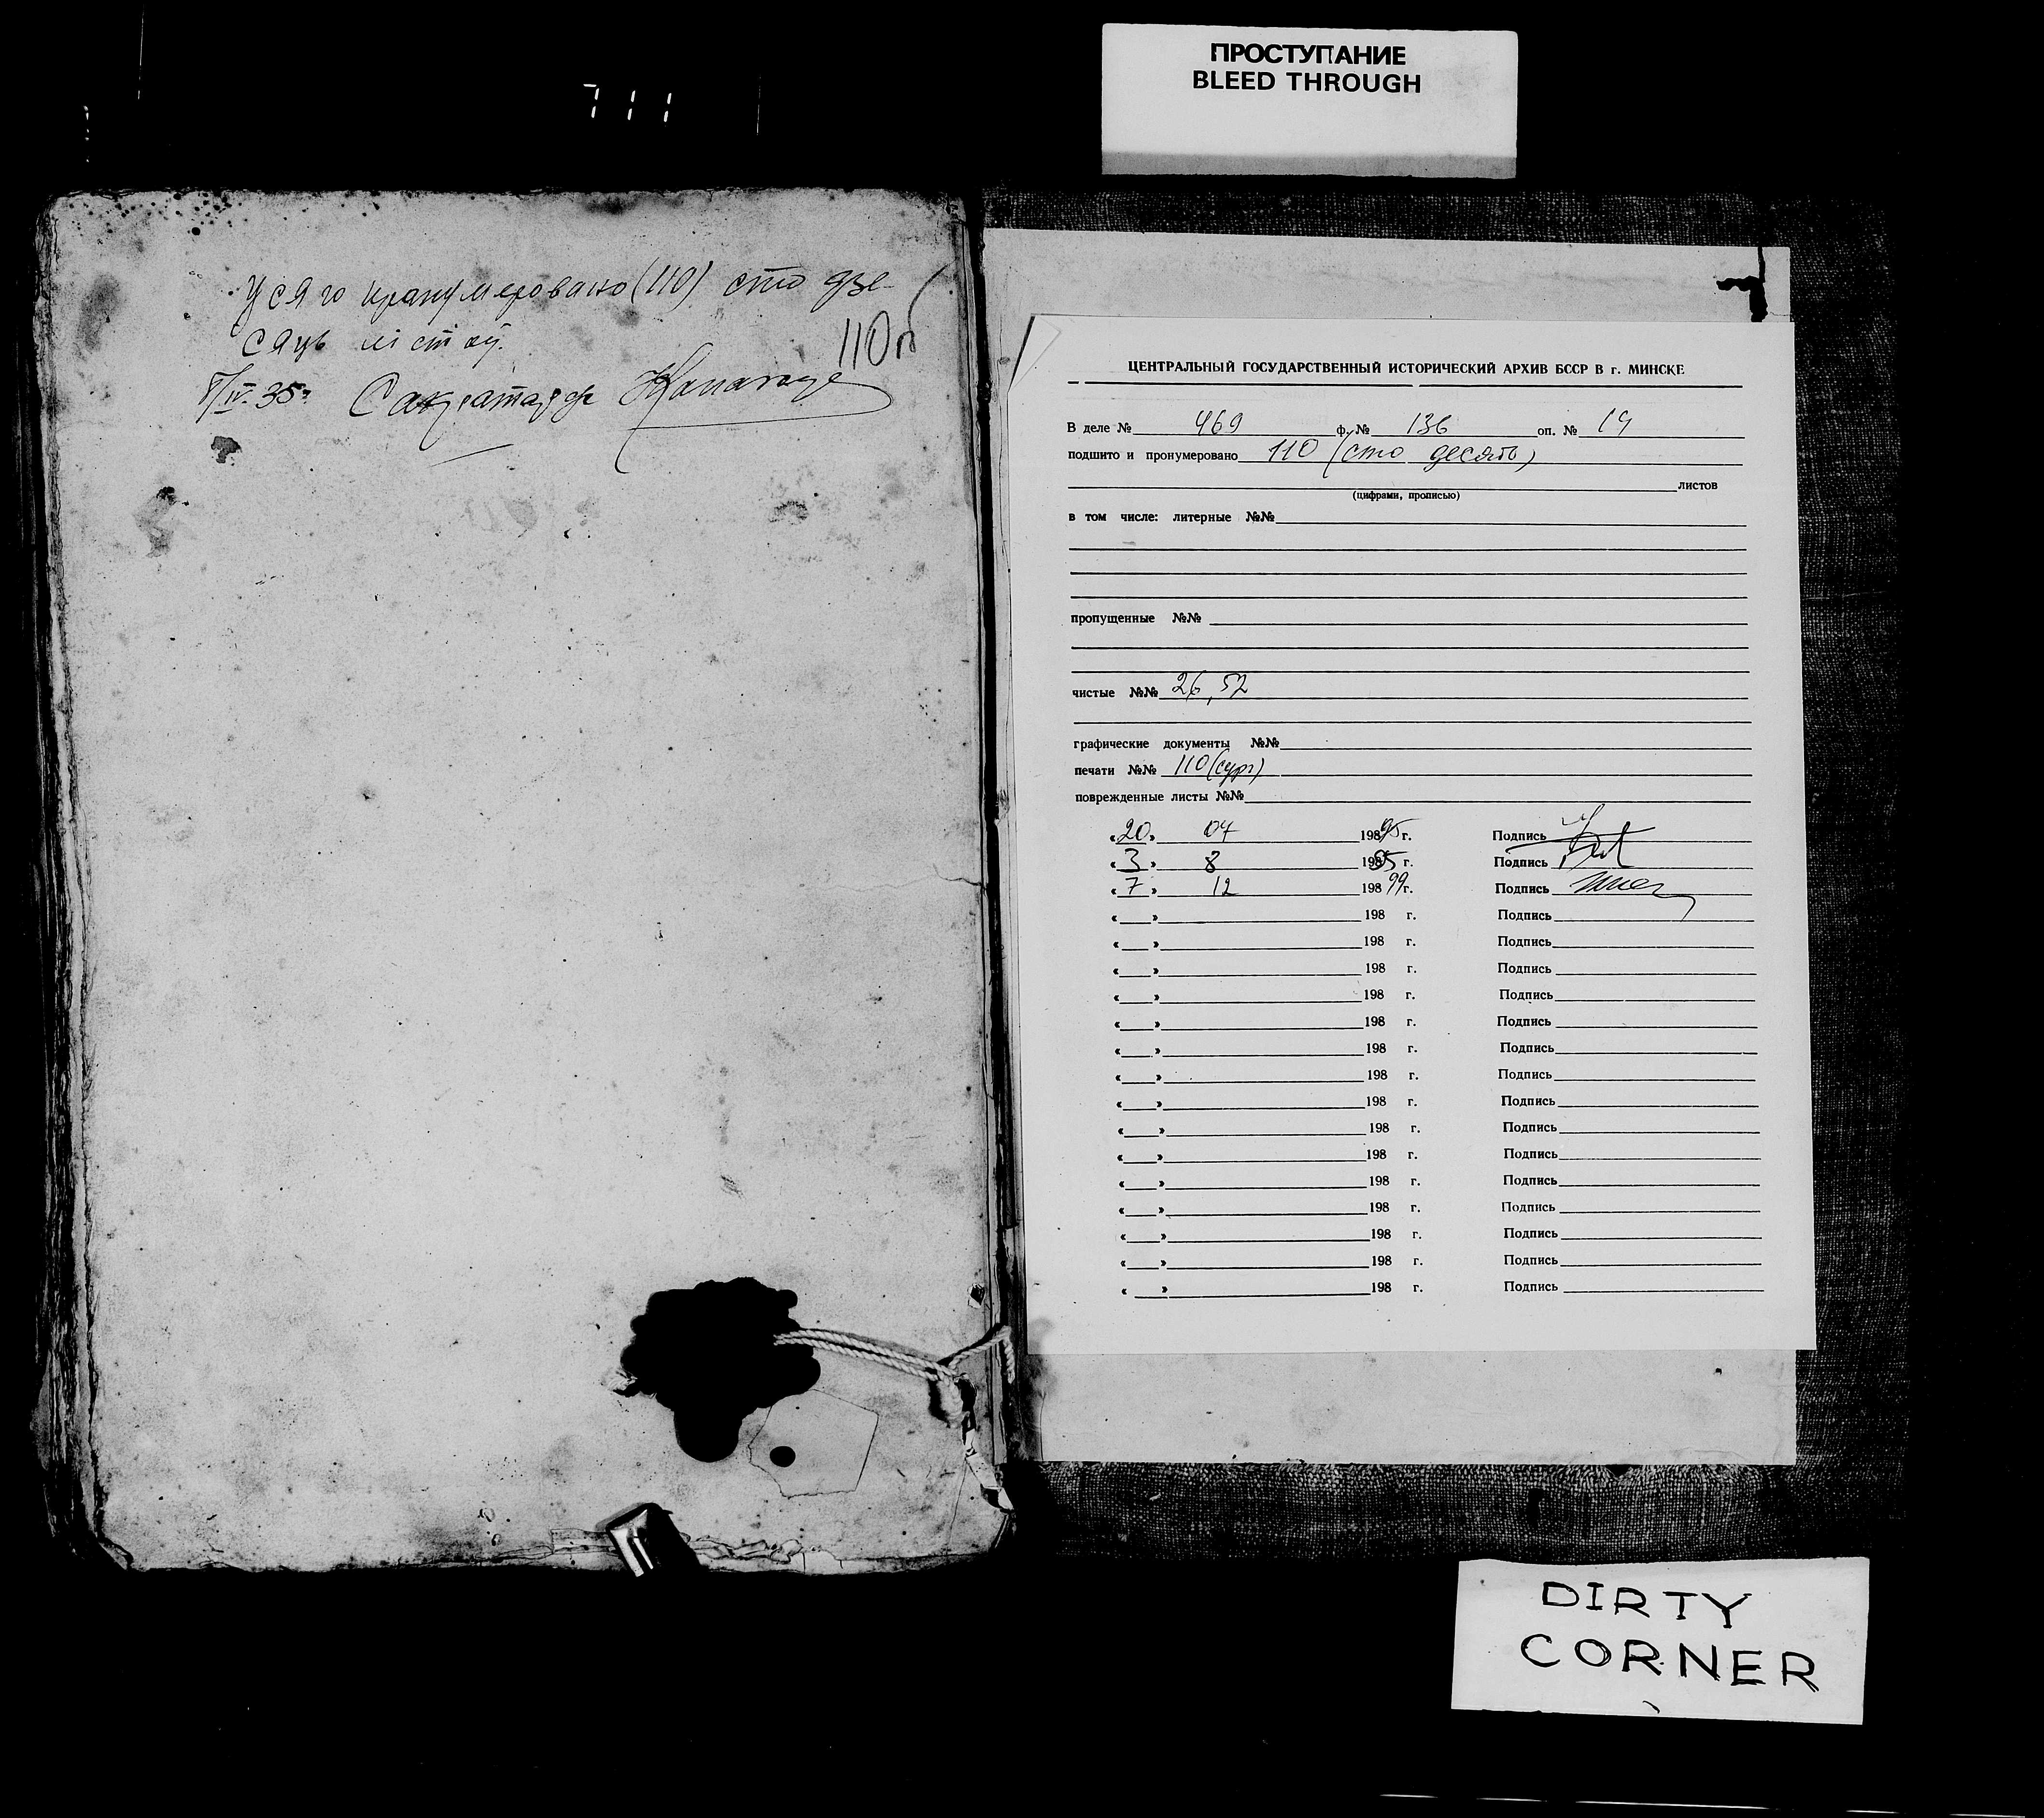 711
ПРОСТУПАНИЕ
BLEED THROUGH
Усяго пранумеровано (110) сто дзе-
сяць лістоў.
110
8/IV-35г. Сакратар
ЦЕНТРАЛЬНЫЙ ГОСУДАРСТВЕННЫЙ ИСТОРИЧЕСКИЙ АРХИВ БССР В г. МИНСКЕ
В деле № 469 ф. № 136 оп. № 14
подшито и пронумеровано 110 (сто десять)
листов
(цифрами, прописью)
в том числе: литерные №№
пропущенные №№
чистые №№ 26, 52
графические документы №№
печати №№ 110 (сург)
поврежденные листы №№
«20» 04 1985 г. Подпись
«3» 8 1995 г. Подпись
«7» 12 198 99 г. Подпись
« » 198 г. Подпись
« » 198 г. Подпись
« » 198 г. Подпись
« » 198 г. Подпись
« » 198 г. Подпись
« » 198 г. Подпись
« » 198 г. Подпись
« » 198 г. Подпись
« » 198 г. Подпись
« » 198 г. Подпись
« » 198 г. Подпись
« » 198 г. Подпись
« » 198 г. Подпись
« » 198 г. Подпись
« » 198 г. Подпись
DIRTY
CORNER